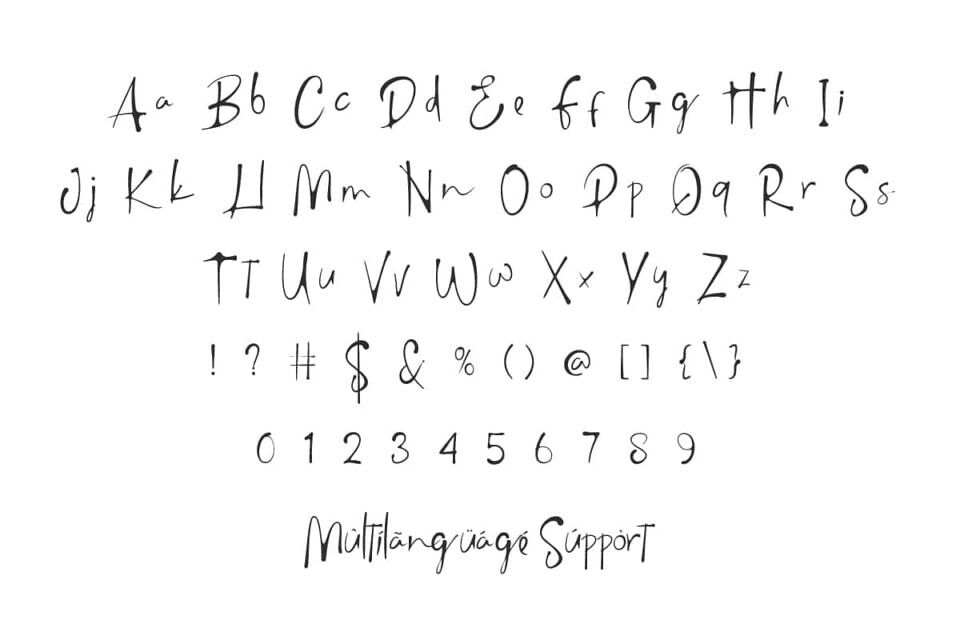 Aa Bb Cc Dd Ee Ff Gg Hh Ii
Jj Kk Ll Mm Nn Oo Pp Qq Rr Ss
Tt Uu Vv Ww Xx Yy Zz
! ? # $ & % ( ) @ [ ] { \ }
0 1 2 3 4 5 6 7 8 9
Mùltílãngüágé Súppòrt